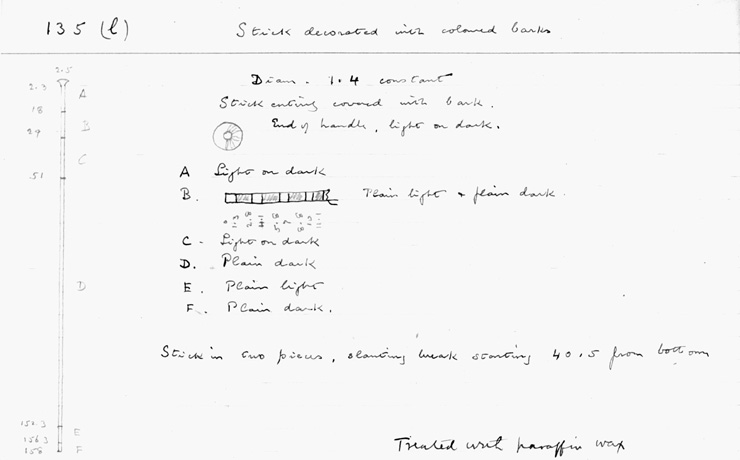 135 (l) Stick decorated with coloured barks
2.5
2.3
A
18
B
29
C
51
D
152.3
E
156.3
F
158
Diam. 1.4 constant
Stick entirely covered with bark.
End of handle, light on dark.
A Light on dark
B. Plain light & plain dark.
C - Light on dark
D. Plain dark
E. Plain light
F. Plain dark.
Stick in two pieces, slanting break starting 40.5 from bottom
Treated with paraffin wax